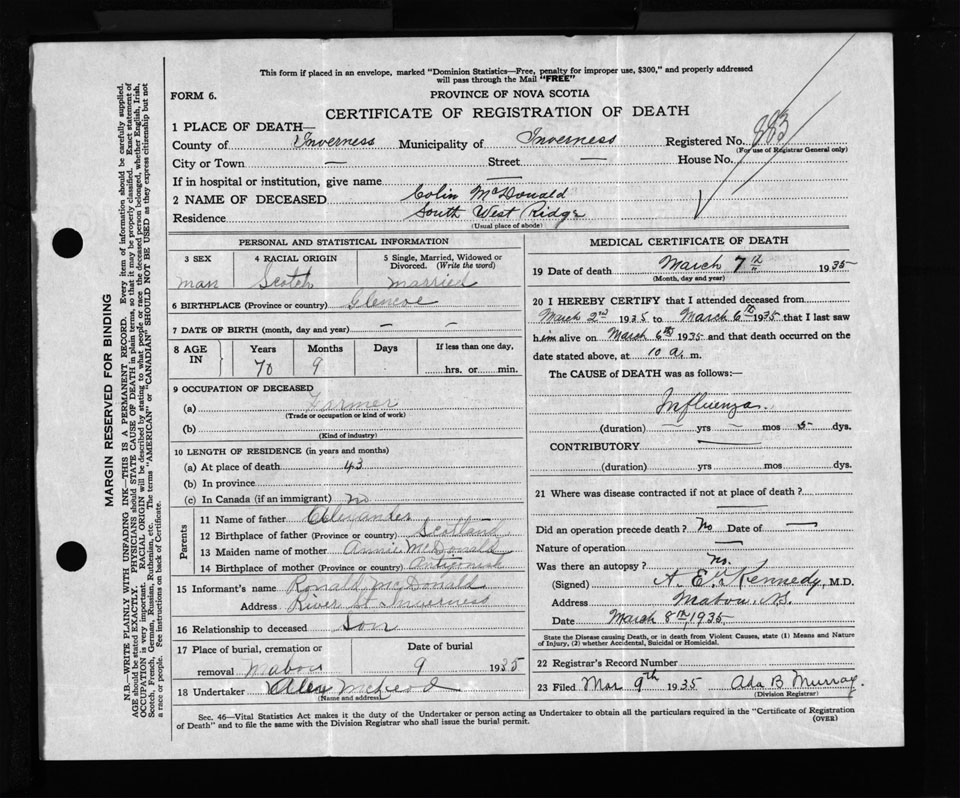 This form if placed in an envelope, marked "Dominion Statistics—Free, penalty for improper use, $300," and properly addressed
will pass through the Mail "FREE"
FORM 6.
PROVINCE OF NOVA SCOTIA
CERTIFICATE OF REGISTRATION OF DEATH
1 PLACE OF DEATH—
County of Inverness Municipality of Inverness Registered No. 883
(For use of Registrar General only)
City or Town — Street — House No.
If in hospital or institution, give name —
2 NAME OF DECEASED Colin McDonald
Residence South West Ridge
(Usual place of abode)
PERSONAL AND STATISTICAL INFORMATION
3 SEX 4 RACIAL ORIGIN 5 Single, Married, Widowed or Divorced. (Write the word)
man Scotch married
6 BIRTHPLACE (Province or country) Glencoe
7 DATE OF BIRTH (month, day and year) — —
8 AGE IN Years Months Days If less than one day,
70 9 hrs. or min.
9 OCCUPATION OF DECEASED
(a) Farmer
(Trade or occupation or kind of work)
(b)
(Kind of industry)
10 LENGTH OF RESIDENCE (in years and months)
(a) At place of death 43
(b) In province
(c) In Canada (if an immigrant) no
Parents
11 Name of father Alexander
12 Birthplace of father (Province or country) Scotland
13 Maiden name of mother Annie McDonald
14 Birthplace of mother (Province or country) Antigonish
15 Informant's name Ronald McDonald
Address River St Inverness
16 Relationship to deceased Son
17 Place of burial, cremation or removal Mabou Date of burial 9 1935
18 Undertaker Alex McLeod
(Name and address)
MEDICAL CERTIFICATE OF DEATH
19 Date of death March 7th 1935
(Month, day and year)
20 I HEREBY CERTIFY that I attended deceased from
March 2nd 1935 to March 6th 1935 that I last saw
him alive on March 6th 1935 and that death occurred on the
date stated above, at 10 a. m.
The CAUSE of DEATH was as follows:—
Influenza.
(duration) — yrs — mos 5 dys.
CONTRIBUTORY —
(duration) yrs. mos. dys.
21 Where was disease contracted if not at place of death? —
Did an operation precede death? No Date of —
Nature of operation —
Was there an autopsy? No.
(Signed) A. E. Kennedy, M.D.
Address Mabou, N.S.
Date March 8th, 1935
State the Disease causing Death, or in death from Violent Causes, state (1) Means and Nature
of Injury, (2) whether Accidental, Suicidal or Homicidal.
22 Registrar's Record Number
23 Filed Mar 9th 1935 Ada B Murray.
(Division Registrar)
Sec. 46—Vital Statistics Act makes it the duty of the Undertaker or person acting as Undertaker to obtain all the particulars required in the "Certificate of Registration
of Death" and to file the same with the Division Registrar who shall issue the burial permit. (OVER)
MARGIN RESERVED FOR BINDING
N.B.—WRITE PLAINLY WITH UNFADING INK—THIS IS A PERMANENT RECORD. Every item of information should be carefully supplied.
AGE should be stated EXACTLY. PHYSICIANS should STATE CAUSE OF DEATH in plain terms, so that it may be properly classified. Exact statement of
OCCUPATION is very important. RACIAL ORIGIN will be described by stating to what people or race the deceased person belonged, whether English, Irish,
Scotch, French, German, Russian, Ruthenian, etc. The terms "AMERICAN" or "CANADIAN" SHOULD NOT BE USED as they express citizenship but not
a race or people. See instructions on back of Certificate.